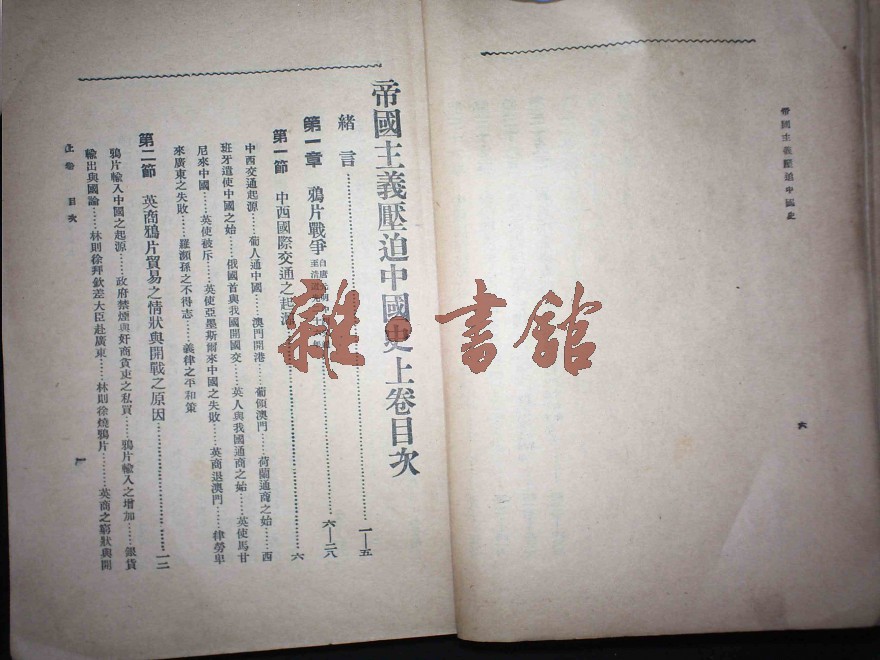 帝國主義壓迫中國史
六
帝國主義壓迫中國史上卷目次
緒言……一—五
第一章 鴉片戰爭……六—二八
第一節 中西國際交通之起源……六
中西交通起源……葡人通中國……澳門開港……葡領澳門……荷蘭通商之始……西
班牙遣使中國之始……俄國首與我國開國交……英人與我國通商之始……英使馬甘
尼來中國……英使被斥……英使亞墨斯爾來中國之失敗……英商退澳門……律勞卑
來廣東之失敗……羅濒孫之不得志……義律之平和策
第二節 英商鴉片貿易之情狀與開戰之原因……一二
鴉片輸入中國之起源……政府禁煙與奸商貪吏之私買……鴉片輸入之增加……銀貨
輸出與國論……林則徐拜欽差大臣赴廣東……林則徐燒鴉片……英商之窮狀與開
上卷 目次
一
雜·書館